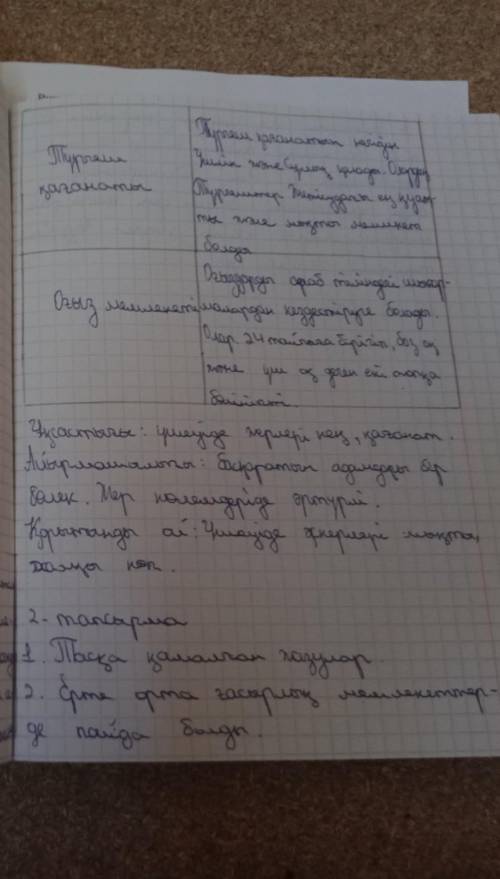 Түргеш
қағанаты
Түргеш қағанатын негізін
Үшлік және Сұлық қалады. Олардың
Түргештер Жетісудағы ең қуат-
ты және мықты мемлекет
болды
Оғыз мемлекеті
Оғыздарды араб тіліндегі шығар-
малардан кездестіруге болады.
Олар 24 тайпаға бөлініп, боз оқ
және үш оқ деген екі топқа
бөлінеті.
Ұқсастығы: үшеуінде жерлері кең, қағанат.
Айырмашылығы: басқаратын адамдары бөр
бөлек. Жер көлемдеріде әртүрлі.
Қорытынды ой: Үшеуінде әскерлері мықты,
халқы көп.
2- тапсырма
1. Тасқа қашалған жазулар.
2. Ерте орта ғасырлық мемлекеттер-
де пайда болды.